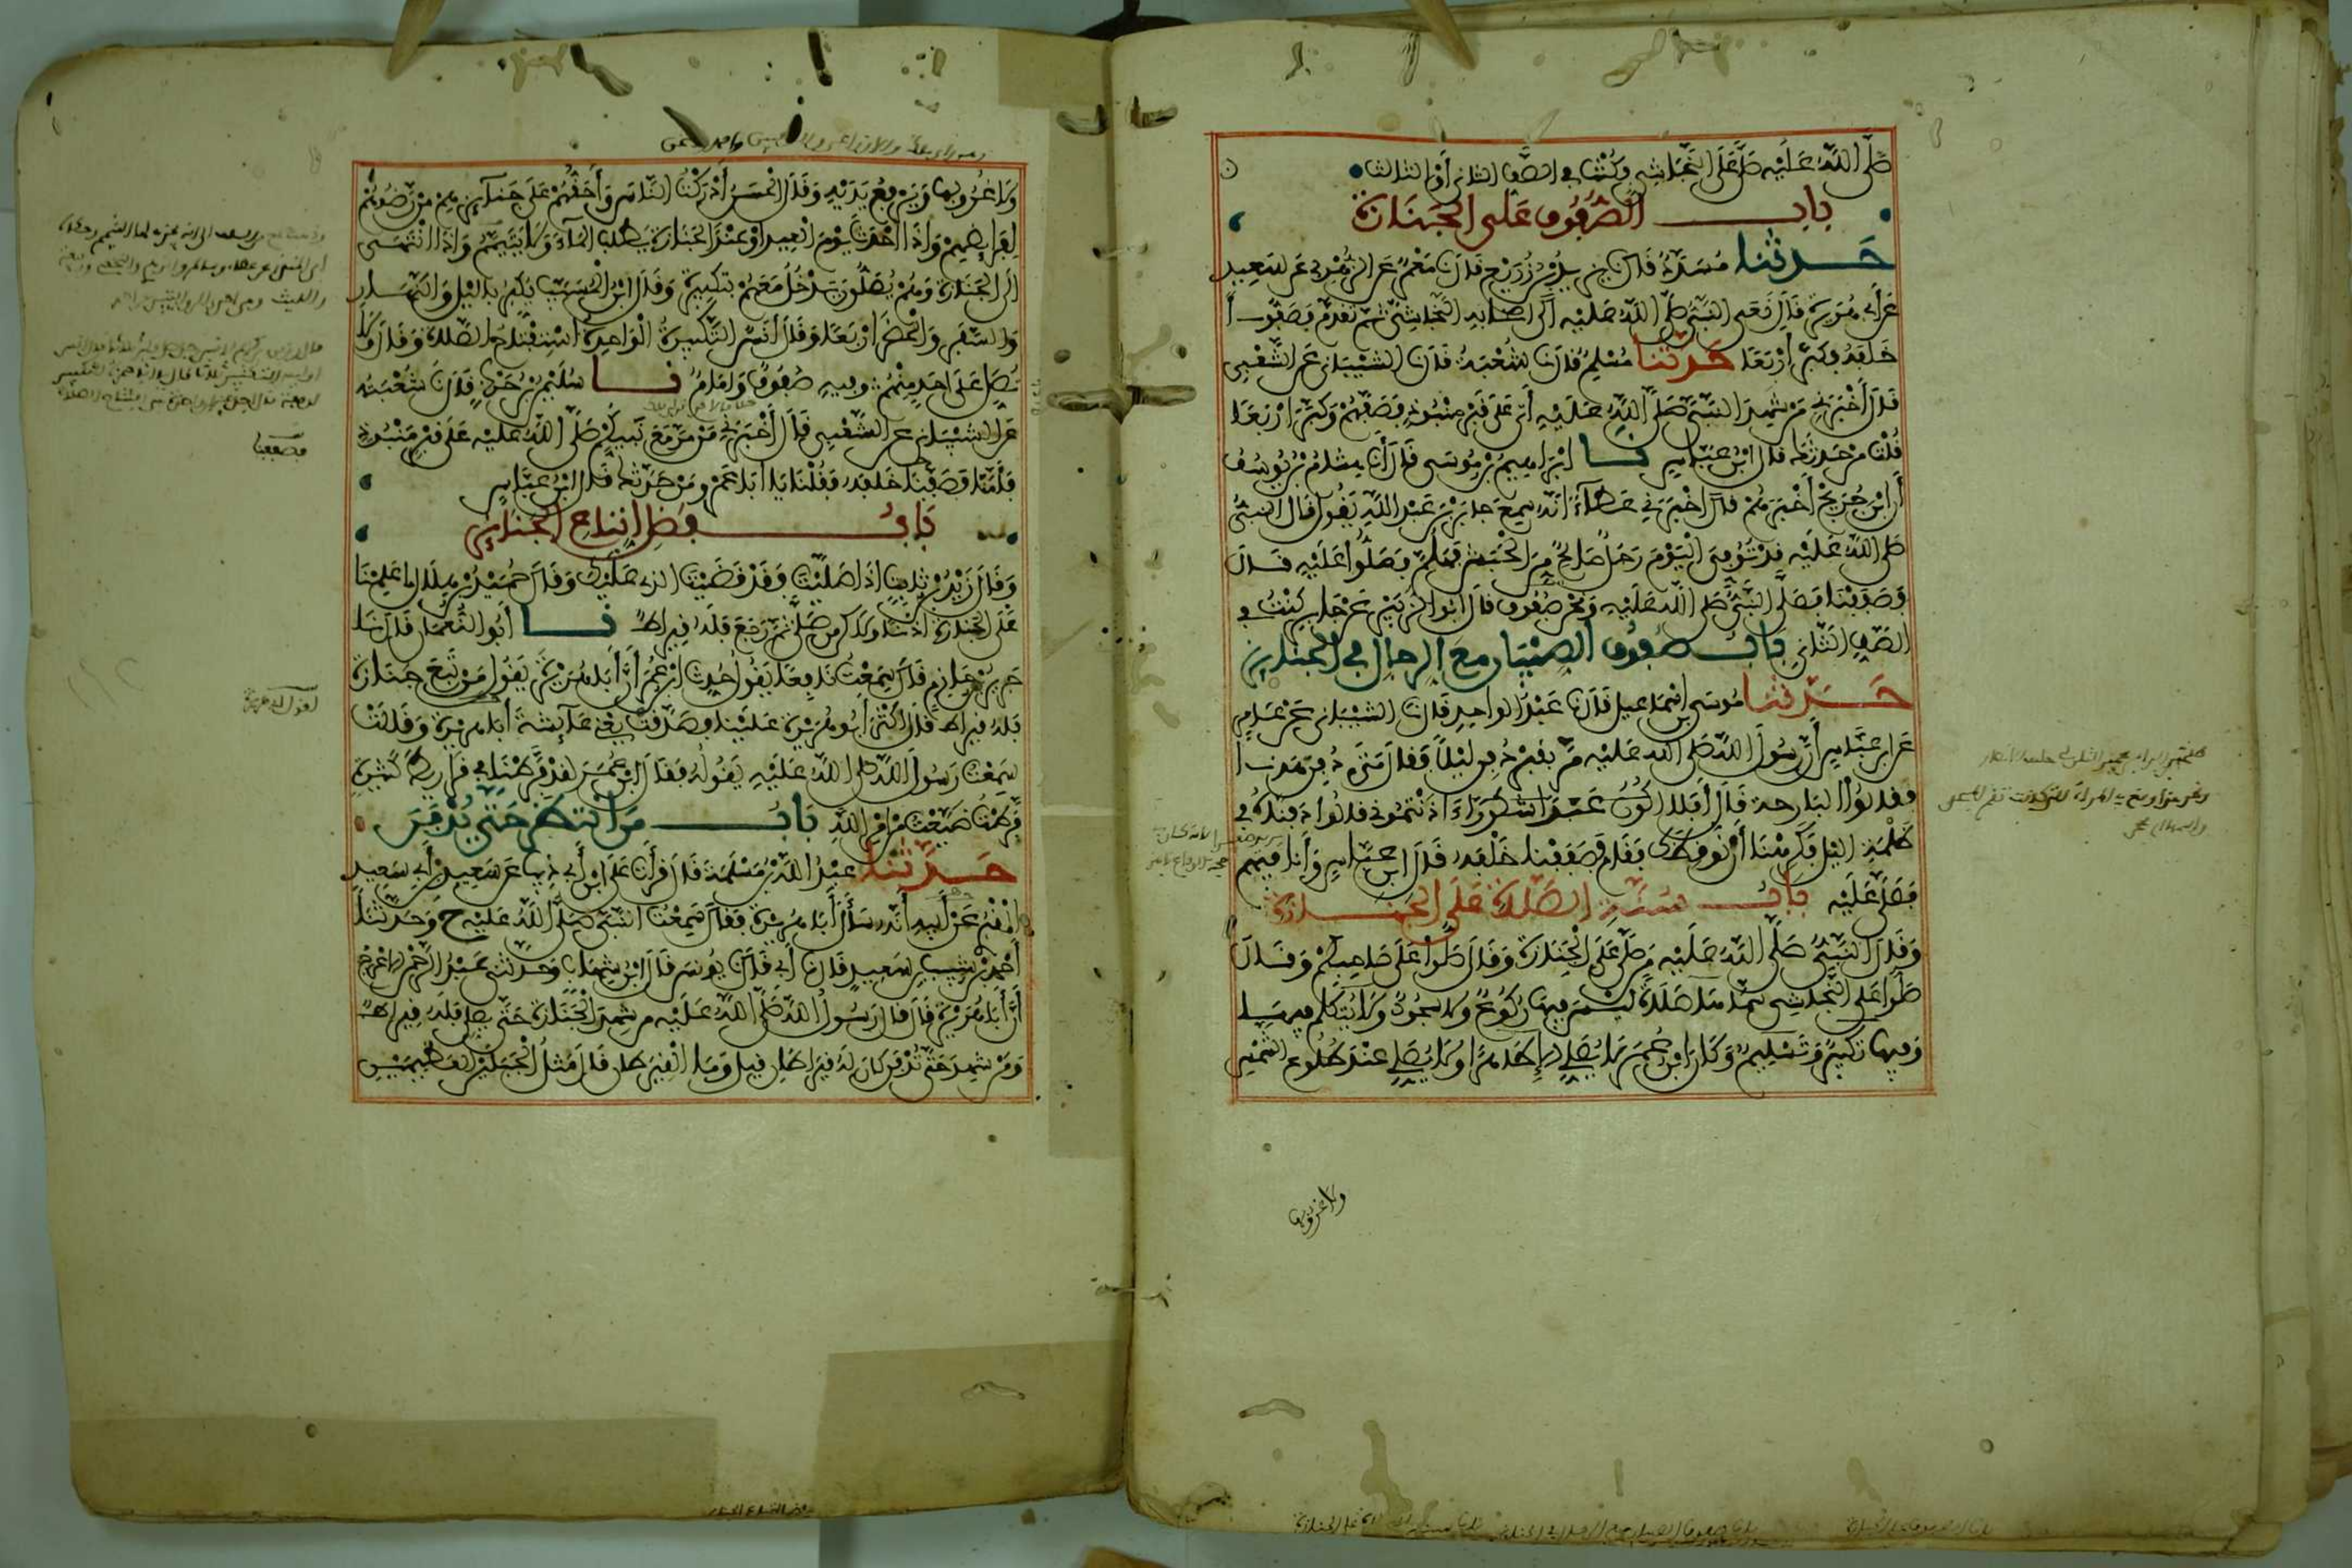 صَلَّى اللَّهُ عَلَيْهِ صَلَّى عَلَى النَّجَاشِي وَكُنْتُ فِي الصَّفِّ الثَّانِي أَوِ الثَّالِثِ
بابُ الصُّفُوفِ عَلَى الْجَنَازَةِ
حَدَّثَنَا مُسَدَّدٌ قال نا يزيد بْنُ زُرَيْعٍ قال نا مَعْمَرٌ عَنِ الزُّهْرِيِّ عَنْ سَعِيدٍ
عَنْ أَبِي هُرَيْرَةَ قَالَ نَعَى النَّبِيُّ صَلَّى اللَّهُ عَلَيْهِ إِلَى أَصْحَابِهِ النَّجَاشِيَّ ثُمَّ تَقَدَّمَ فَصَفُّوا
خَلْفَهُ وَكَبَّرَ أَرْبَعًا حَدَّثَنَا مُسْلِمٌ قال نا شُعْبَةُ قال نا الشَّيْبَانِي عَنِ الشَّعْبِي
قَالَ أَخْبَرَنِي مَنْ شَهِدَ النَّبِيَّ صَلَّى اللَّهُ عَلَيْهِ أَتَى عَلَى قَبْرٍ مَنْبُوذٍ فَصَفَّهُمْ وَكَبَّرَ أَرْبَعًا
قُلْتُ مَنْ حَدَّثَكَ قال ابْنُ عَبَّاسٍ نا إِبْرَاهِيمُ بْنُ مُوسَى قَالَ أَنَا هِشَامُ بْنُ يُوسُفَ
أَنَّ ابْنَ جُرَيْجٍ أَخْبَرَهُمْ قال أَخْبَرَنِي عَطَاءٌ أَنَّهُ سَمِعَ جَابِرَ بْنَ عَبْدِ اللَّهِ يَقُولُ قَالَ النَّبِيُّ
صَلَّى اللَّهُ عَلَيْهِ قَدْ تُوُفِّيَ الْيَوْمَ رَجُلٌ صَالِحٌ مِنَ الْحَبَشِ فَهَلُمَّ فَصَلُّوا عَلَيْهِ قَالَ
فَصَفَفْنَا فَصَلَّى النَّبِيُّ صَلَّى اللَّهُ عَلَيْهِ وَنَحْنُ صُفُوفٌ قَالَ أَبُو الزُّبَيْرِ عَنْ جَابِرٍ كُنْتُ فِي
الصَّفِّ الثَّانِي بَابُ صُفُوفِ الصِّبْيَانِ مَعَ الرِّجَالِ فِي الْجَنَائِزِ
حَدَّثَنَا مُوسَى بن إِسْمَاعِيلَ قَالَ نا عَبْدُ الْوَاحِدِ قَالَ نا الشَّيْبَانِي عَنْ عَامِرٍ
عَنِ ابْنِ عَبَّاسٍ أَنَّ رَسُولَ اللَّهِ صَلَّى اللَّهُ عَلَيْهِ مَرَّ بِقَبْرٍ دُفِنَ لَيْلًا فَقَالَ مَتَى دُفِنَ هَذَا
فقالوا الْبَارِحَةَ قَالَ أَفَلَا آذَنْتُمُونِي قَالُوا دَفَنَّاهُ فِي
ظُلْمَةِ اللَّيْلِ فَكَرِهْنَا أَنْ نُوقِظَكَ فَقَامَ فَصَفَفْنَا خَلْفَهُ قَالَ ابْنُ عَبَّاسٍ وَأَنَا فِيهِمْ
فَصَلَّى عَلَيْهِ بَابُ سُنَّةِ الصَّلَاةِ عَلَى الْجَنَازَةِ
وَقَالَ النَّبِيُّ صَلَّى اللَّهُ عَلَيْهِ مَنْ صَلَّى عَلَى الْجَنَازَةِ وَقَالَ صَلُّوا عَلَى صَاحِبِكُمْ وَقَالَ
صَلُّوا عَلَى النَّجَاشِي سَمَّاهَا صَلَاةً لَيْسَ فِيهَا رُكُوعٌ وَلَا سُجُودٌ وَلَا يُتَكَلَّمُ فِيهَا
وَفِيهَا تَكْبِيرٌ وَتَسْلِيمٌ وَكَانَ ابْنُ عُمَرَ لَا يُصَلِّي إِلَّا طَاهِرًا وَلَا يُصَلِّي عِنْدَ طُلُوعِ الشَّمْسِ
ولا غروبها
وَلَا غُرُوبِهَا وَيَرْفَعُ يَدَيْهِ وَقَالَ الْحَسَنُ أَدْرَكْتُ النَّاسَ وَأَحَقُّهُمْ عَلَى جَنَائِزِهِمْ مَنْ رَضُوهُمْ
لِفَرَائِضِهِمْ وَإِذَا أَحْدَثَ يَوْمَ الْعِيدِ أَوْ عِنْدَ الْجَنَازَةِ يَطْلُبُ الْمَاءَ وَلَا يَتَيَمَّمُ وَإِذَا انْتَهَى
إِلَى الْجَنَازَةِ وَهُمْ يُصَلُّونَ يَدْخُلُ مَعَهُمْ بِتَكْبِيرَةٍ وَقَالَ ابْنُ الْمُسَيَّبِ يُكَبِّرُ بِاللَّيْلِ وَالنَّهَارِ
وَالسَّفَرِ وَالْحَضَرِ أَرْبَعًا وَقَالَ أَنَسٌ التَّكْبِيرَةُ الْوَاحِدَةُ اسْتِفْتَاحُ الصَّلَاةِ وَقَالَ وَلَا
تُصَلِّ عَلَى أَحَدٍ مِنْهُمْ وَفِيهِ صُفُوفٌ وَإِمَامٌ نا سُلَيْمَانُ بْنُ حَرْبٍ قَالَ نا شُعْبَةُ
عَنِ الشَّيْبَانِي عَنِ الشَّعْبِي قَالَ أَخْبَرَنِي مَنْ مَرَّ مَعَ نَبِيِّكُمْ صَلَّى اللَّهُ عَلَيْهِ عَلَى قَبْرٍ مَنْبُوذٍ
فَأَمَّنَا فَصَفَفْنَا خَلْفَهُ فَقُلْنَا يَا أَبَا عَمْرٍو مَنْ حَدَّثَكَ قَالَ ابْنُ عَبَّاسٍ
بَابُ فَضْلِ اتِّبَاعِ الْجَنَائِزِ
وَقَالَ زَيْدُ بْنُ ثَابِتٍ إِذَا صَلَّيْتَ فَقَدْ قَضَيْتَ الَّذِي عَلَيْكَ وَقَالَ حُمَيْدُ بْنُ هِلَالٍ مَا عَلِمْنَا
عَلَى الْجَنَازَةِ إِذْنًا وَلَكِنْ مَنْ صَلَّى ثُمَّ رَجَعَ فَلَهُ قِيرَاطٌ نا أَبُو النُّعْمَانِ قَالَ نَا
جَرِيرُ بْنُ حَازِمٍ قَالَ سَمِعْتُ نَافِعًا يَقُولُ حُدِّثَ ابْنُ عُمَرَ أَنَّ أَبَا هُرَيْرَةَ يَقُولُ مَنْ تَبِعَ جَنَازَةً
فَلَهُ قِيرَاطٌ قَالَ أَكْثَرَ أَبُو هُرَيْرَةَ عَلَيْنَا فَصَدَّقَتْ يَعْنِي عَائِشَةَ أَبَا هُرَيْرَةَ وَقَالَتْ
سَمِعْتُ رَسُولَ اللَّهِ صلى اللَّهُ عَلَيْهِ يَقُولُهُ فَقَالَ ابْنُ عُمَرَ لَقَدْ فَرَّطْنَا فِي قَرَارِيطَ كَثِيرَةٍ
فَرَّطْتُ ضَيَّعْتُ مِنْ أَمْرِ اللَّهِ بَابُ مَنِ انْتَظَرَ حَتَّى تُدْفَنَ
حَدَّثَنَا عَبْدُ اللَّهِ بْنُ مَسْلَمَةَ قَالَ قَرَأْتُ عَلَى ابْنِ أَبِي ذِئْبٍ عَنْ سَعِيدِ بْنِ أَبِي سَعِيدٍ
الْمَقْبُرِي عَنْ أَبِيهِ أَنَّهُ سَأَلَ أَبَا هُرَيْرَةَ فَقَالَ سَمِعْتُ النَّبِيَّ صَلَّى اللَّهُ عَلَيْهِ ح وَحَدَّثَنَا
أَحْمَدُ بْنُ شَبِيبِ بْنِ سَعِيدٍ قَالَ نا أَبِي قَالَ نا يُونُسُ قَالَ ابْنُ شِهَابٍ وَحَدَّثَنِي عَبْدُ الرَّحْمَنِ الْأَعْرَجُ
أَنَّ أَبَا هُرَيْرَةَ قَالَ قَالَ رَسُولُ اللَّهِ صَلَّى اللَّهُ عَلَيْهِ مَنْ شَهِدَ الْجَنَازَةَ حَتَّى يُصَلِّيَ فَلَهُ قِيرَاطٌ
وَمَنْ شَهِدَ حَتَّى تُدْفَنَ كَانَ لَهُ قِيرَاطَانِ قِيلَ وَمَا الْقِيرَاطَانِ قَالَ مِثْلُ الْجَبَلَيْنِ الْعَظِيمَيْنِ